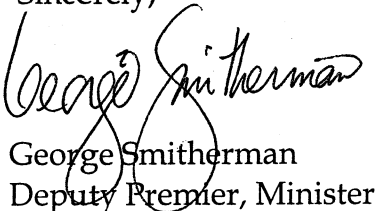 Sincerely,
George Smitherman
George Smitherman
Deputy Premier, Minister